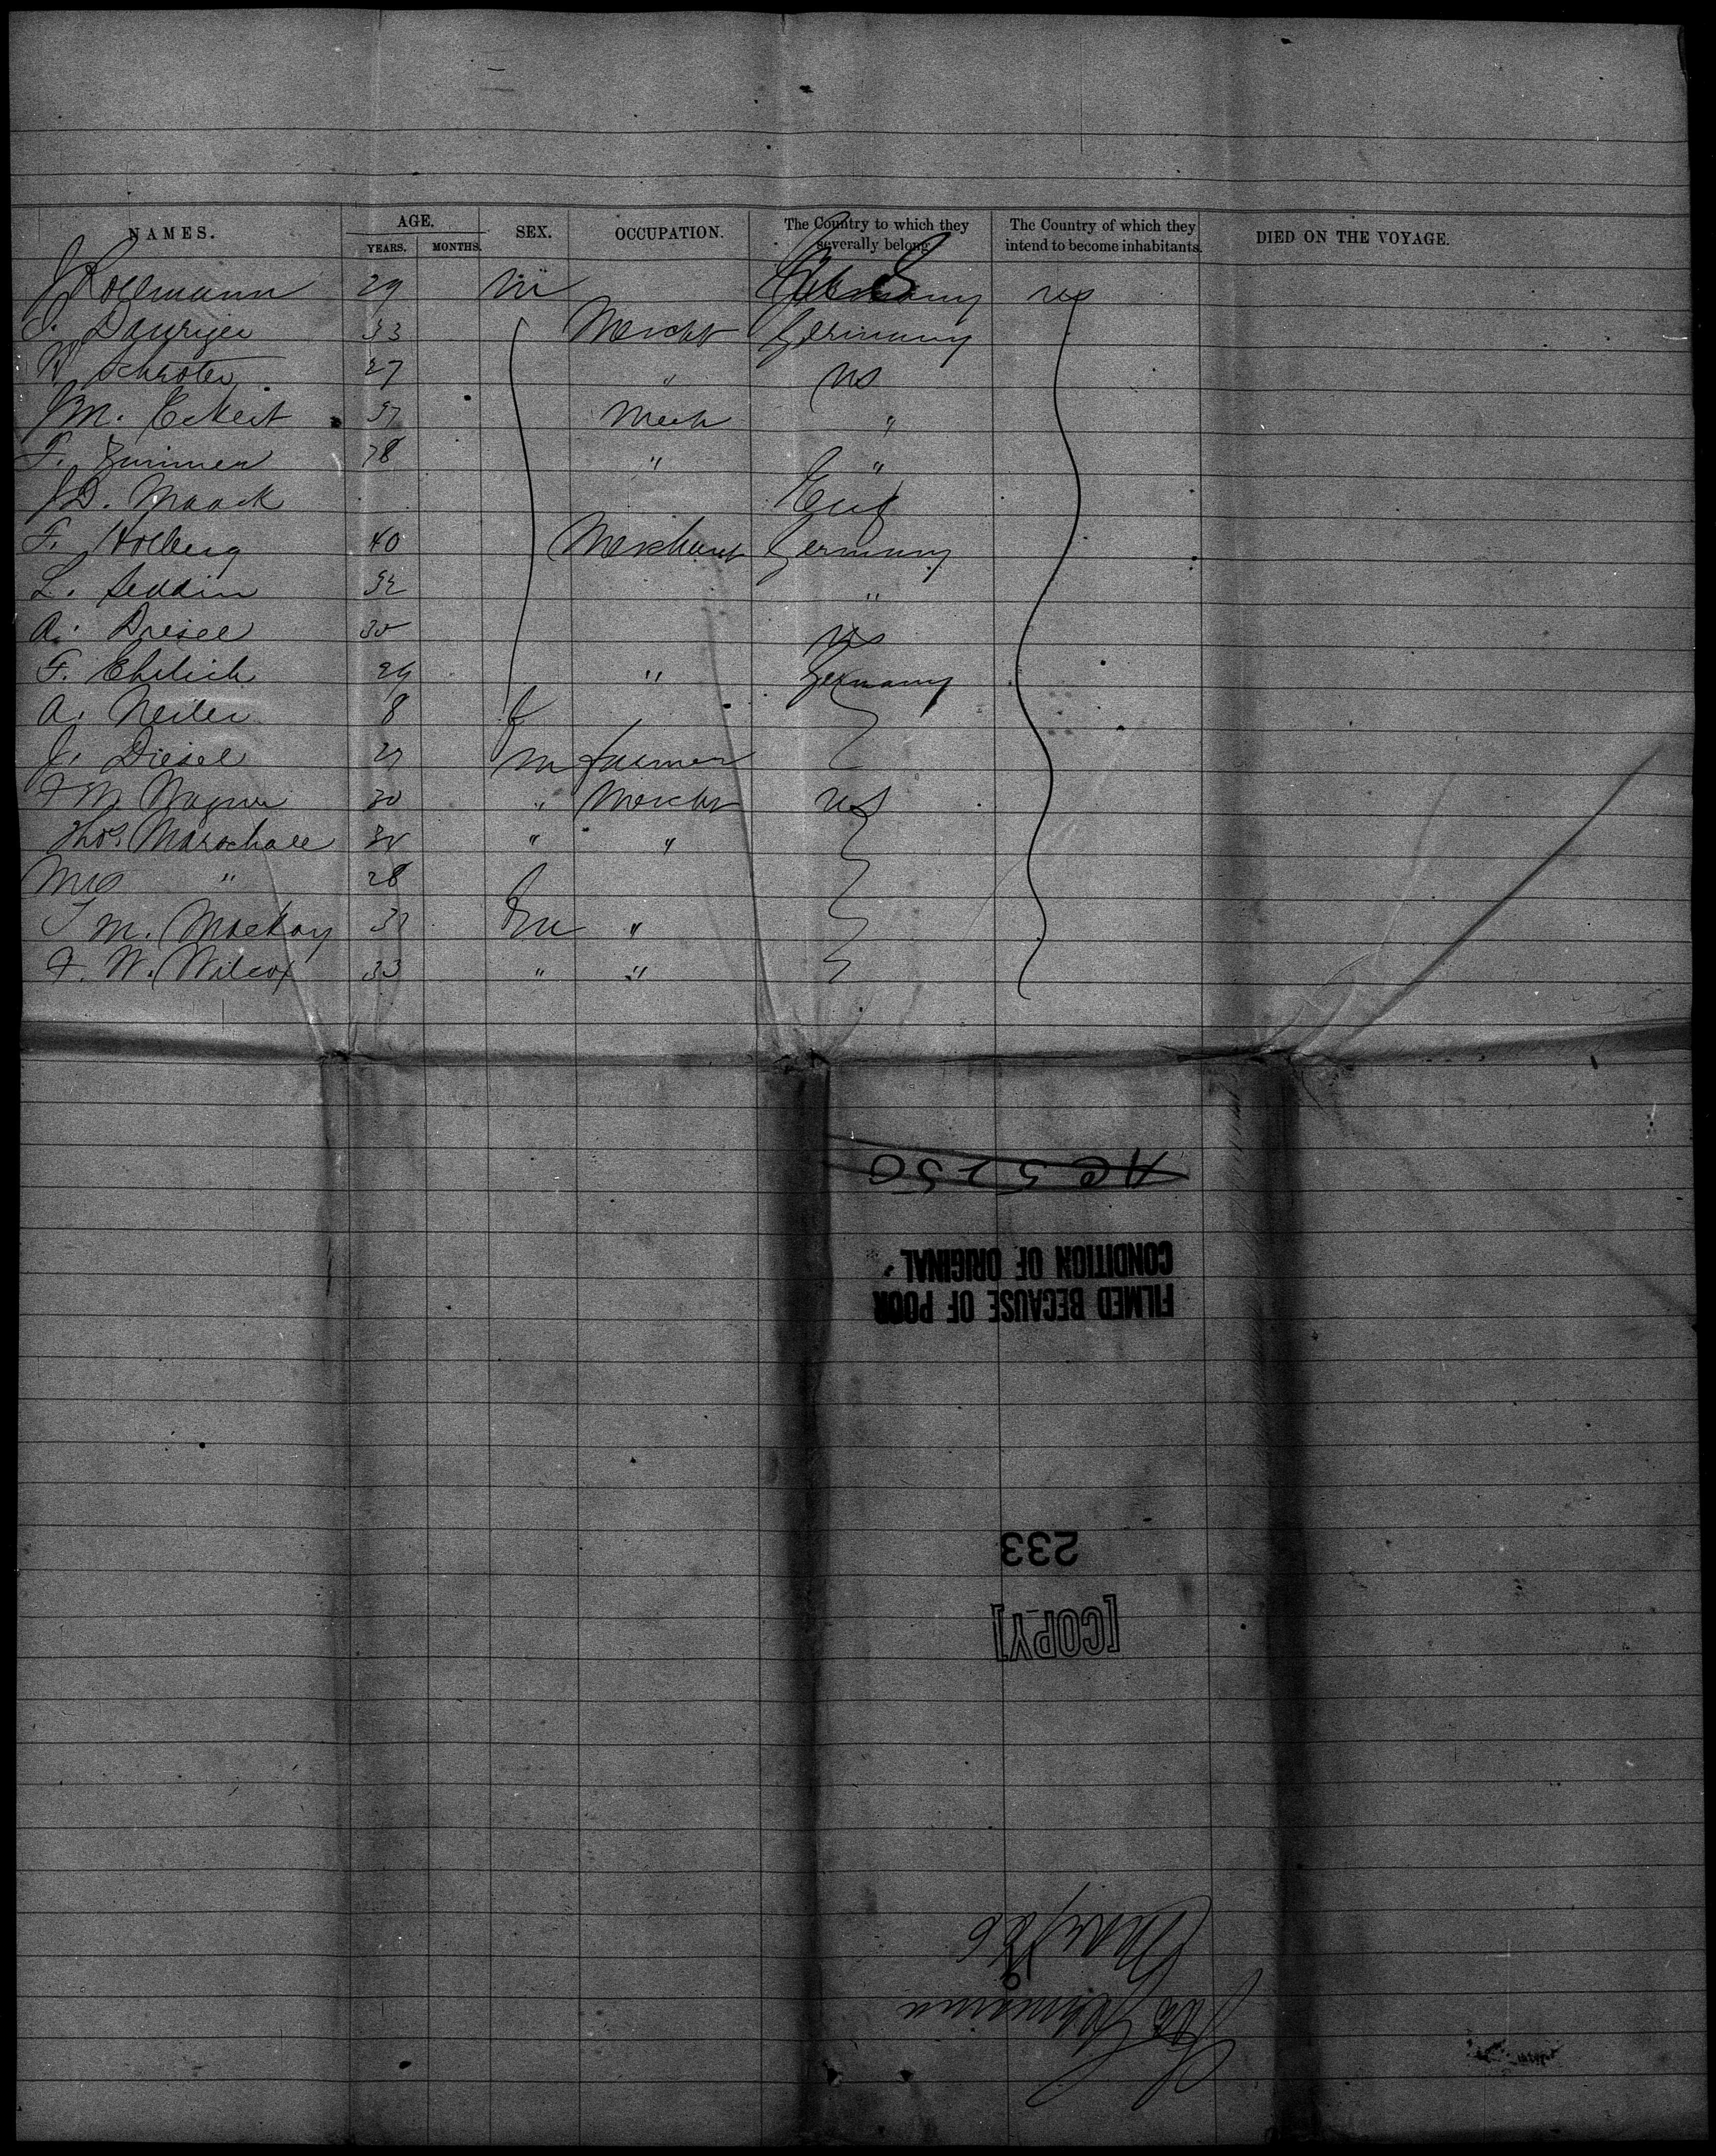 NAMES. AGE. SEX. OCCUPATION. The Country to which they severally belong. The Country of which they intend to become inhabitants. DIED ON THE VOYAGE.
YEARS. MONTHS.
J Rollmann 29 m Germany US
33 Mercht Germany
W Schroter 27 " US
J M. Eckert 37 Mech "
F. Zimmer 28 " "
J D. Maack Eng
F. Holberg 40 Merchant Germany
L. Seddin 32 "
A. Diesel US
F. Ehrlich " Germany
A. Neiler 8 f
J. Diesel m farmer
F M Wagner 30 " Mercht US
Thos Marschall " "
Mrs " 28 f
J M. Mackay m "
F. W. Wilcox 33 " "
FILMED BECAUSE OF POOR
CONDITION OF ORIGINAL
233
[COPY]
Str Germania